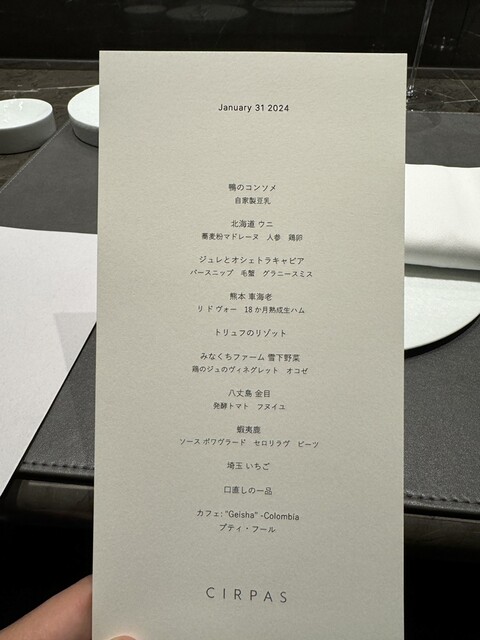 January 31 2024
鴨のコンソメ
自家製豆乳
北海道 ウニ
蕎麦粉マドレーヌ 人参 鶏卵
ジュレとオシェトラキャビア
パースニップ 毛蟹 グラニースミス
熊本 車海老
リ ド ヴォー 18か月熟成生ハム
トリュフのリゾット
みなくちファーム 雪下野菜
鶏のジュのヴィネグレット オコゼ
八丈島 金目
発酵トマト フヌイユ
蝦夷鹿
ソース ポワヴラード セロリラヴ ビーツ
埼玉 いちご
口直しの一品
カフェ: "Geisha" -Colombia
プティ・フール
CIRPAS